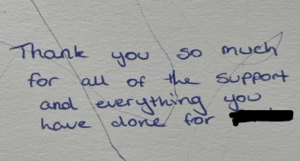 Thank you so much
for all of the support
and everything you
have done for